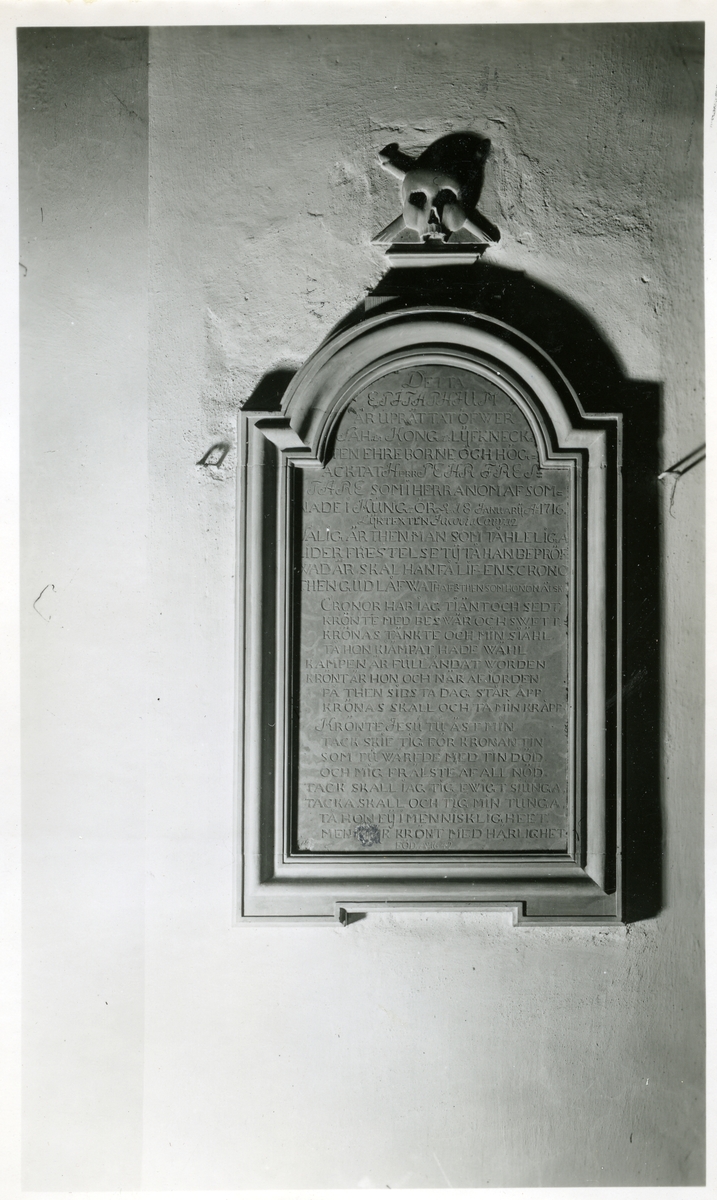 DETTA
EPITAPHAUM
ÄR UPRÄTTAT ÖFWER
SAHL. KONG. LIJFKNECK
TEN EHREBORNE OCH HÖG
ACKTAT HERR PEHR FRES=
TARE SOM I HERRANOM AF SOM=
NADE I KUNG-ÖR D. 18 JANUARIJ A. 1716.
LIJKTEXTEN JACOB. I. CAP. V. 12.
SALIG ÄR THEN MAN SOM TÅHLELIGA
LIDER FRESTELSE TY TÅ HAN BEPRÖF
WAD ÄR SKAL HAN FÅ LIFSENS CRONO
THEN GUD LÅFWAT HAF. THEN SOM HONOM ÄLSK
CRONOR HAR JAG TIÄNT OCH SEDT
KRÖNTE MED BESWÄR OCH SWETT
KRÖNAS TÄNKTE OCH MIN SIÄHL
TÅ HON KIÄMPAT HADE WÄHL
KAMPEN ÄR FULLÄNDAT WORDEN
KRÖNT ÄR HON OCH NÄR AF JORDEN
PÅ THEN SIDSTA DAG STÅR ÄPP
KRÖNAS SKALL OCH TÅ MIN KRÄPP
KRÖNTE JESU TU ÄST MIN
TACK SKIE TIG FÖR KRONAN TIN
SOM TU WARFDE MED TIN DÖD
OCH MIG FRÄLSTE AF ALL NÖD
TACK SKALL JAG TIG EWIGT SJUNGA
TACKA SKALL OCH TIG MIN TUNGA
TÅ HON EIJ I MENNISKLIGHEET
MEN ÄR KRÖNT MED HÄRLIGHET